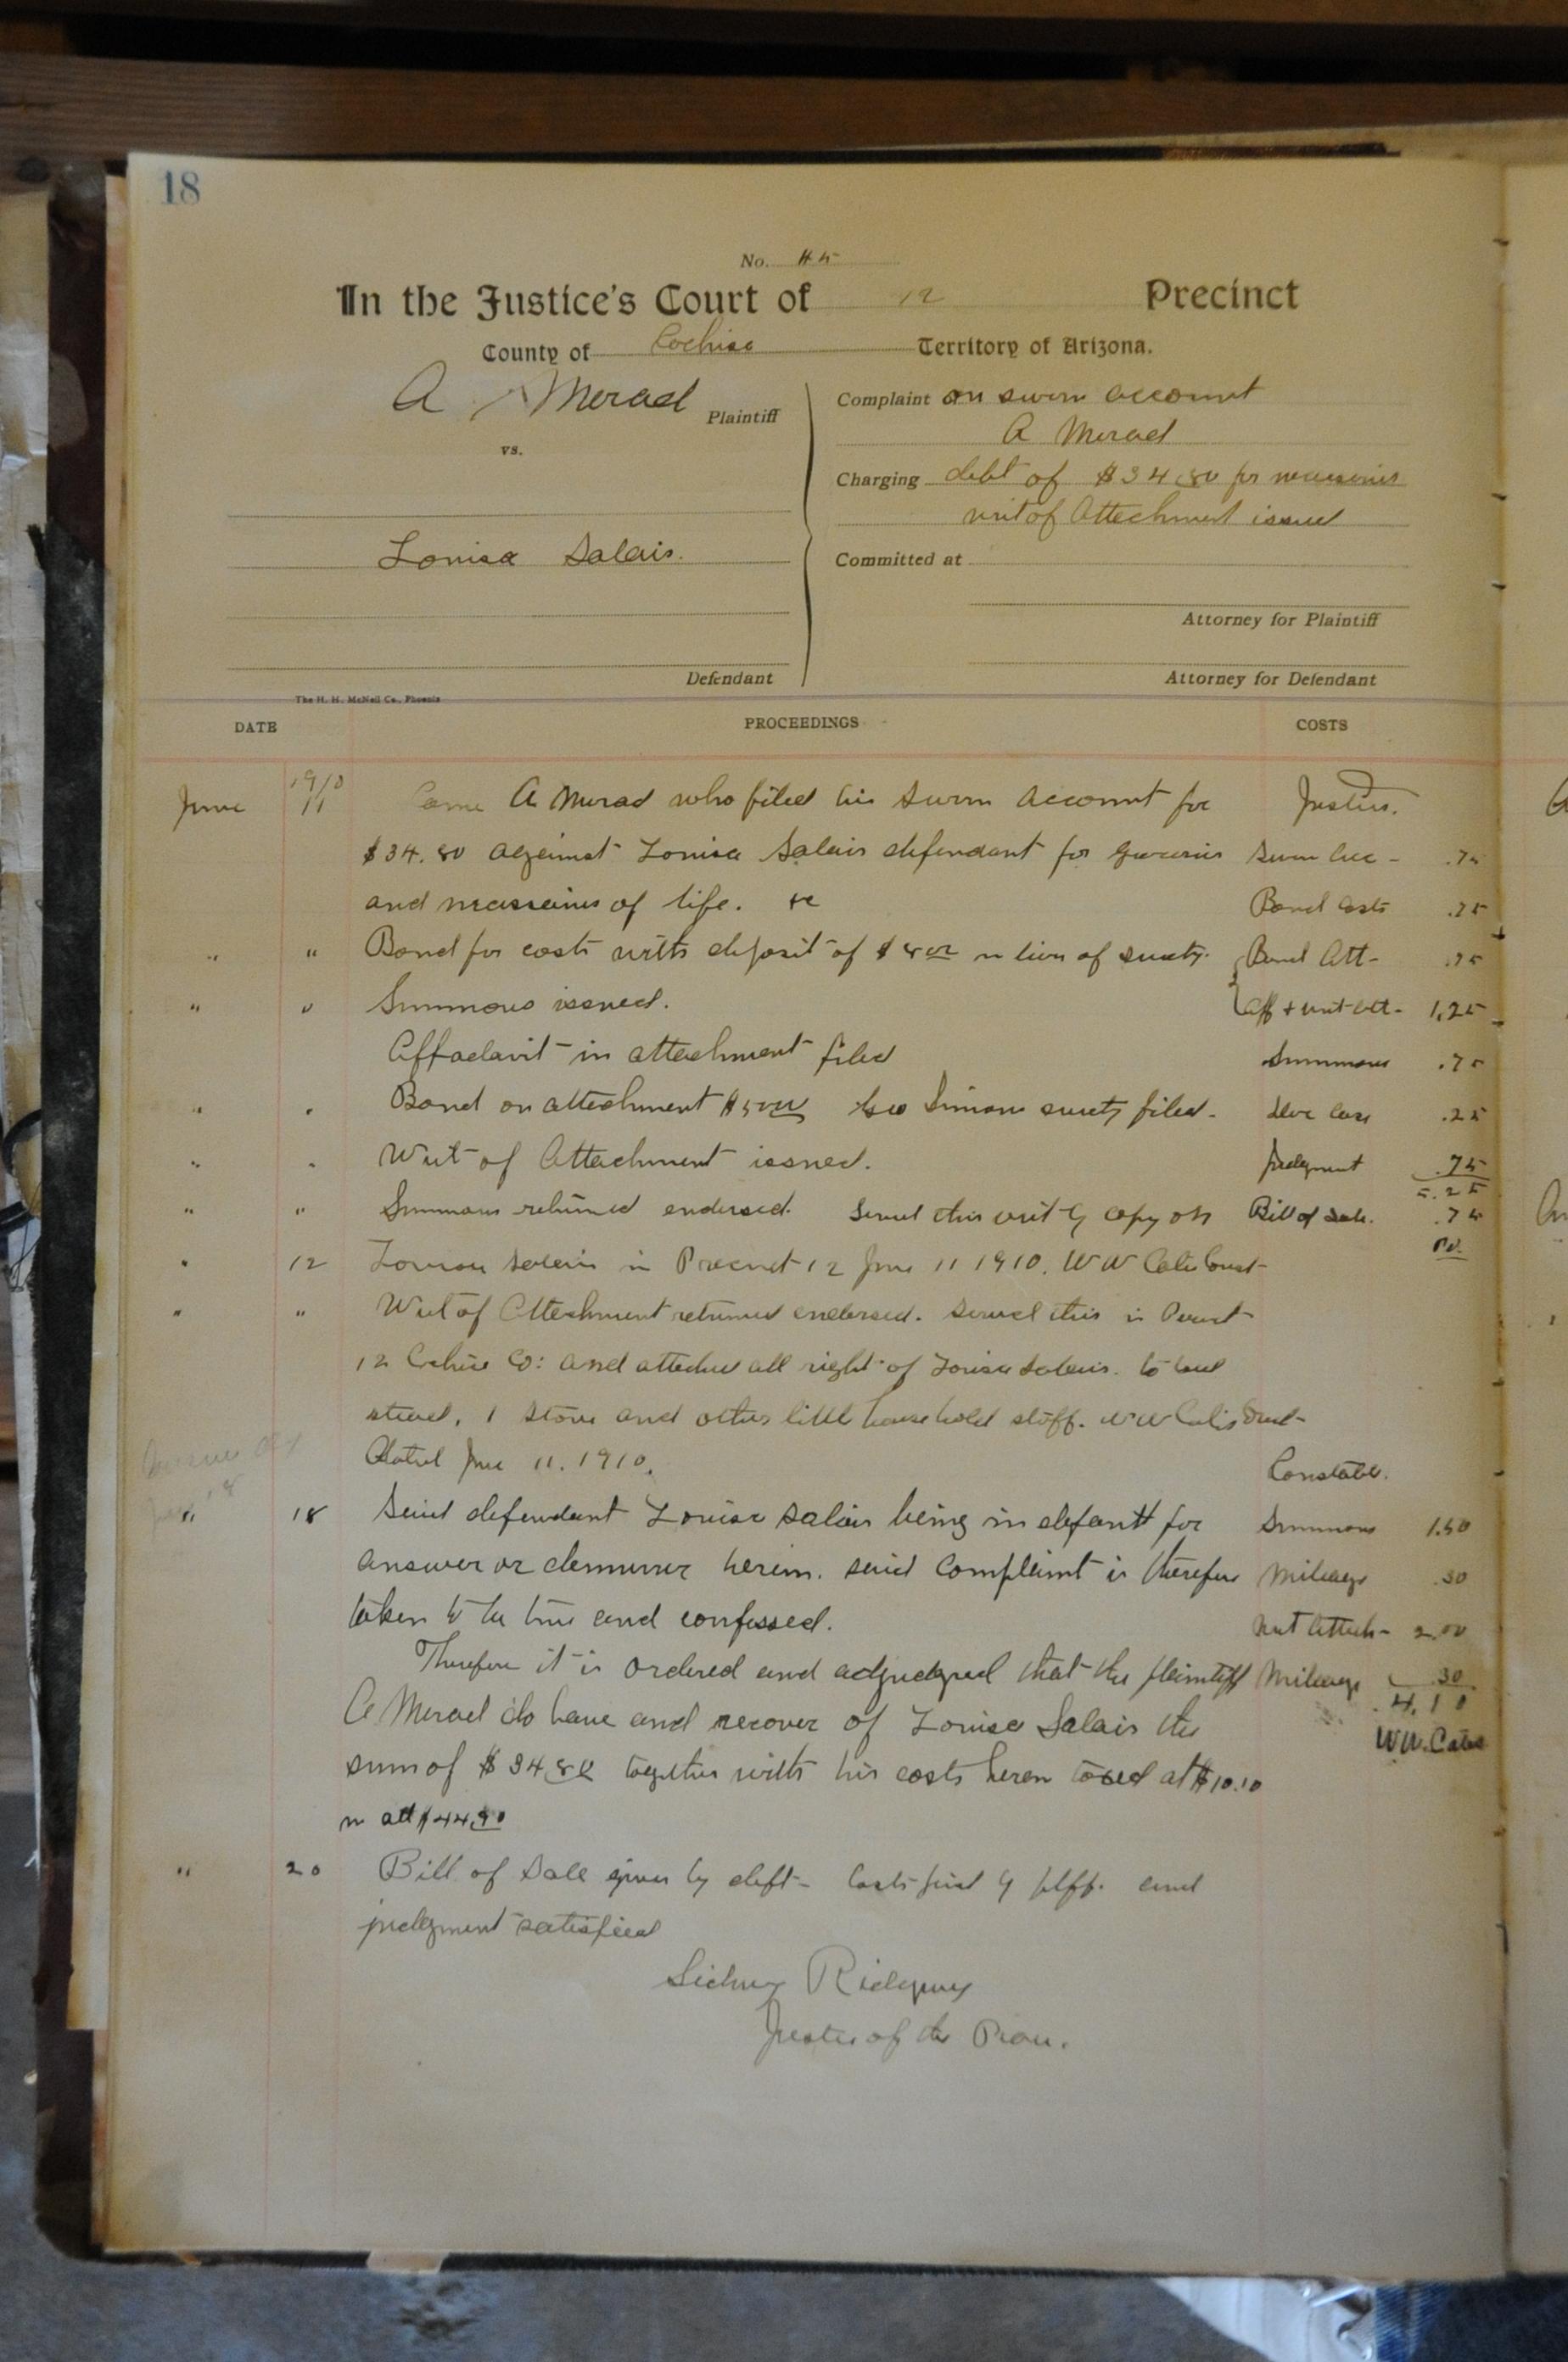 18
No. 45
In the Justice's Court of 12 Precinct
County of Cochise Territory of Arizona.
A Merad Plaintiff
vs.
Louisa Salais.
Defendant
Complaint on sworn account
A Merad
Charging debt of $34.80 for necessaries
writ of Attachment issued
Committed at
Attorney for Plaintiff
Attorney for Defendant
The H. H. McNeil Co., Phoenix
DATE PROCEEDINGS COSTS
June 1910 11 Came A Merad who filed his sworn account for Justice.
$34.80 against Louisa Salais defendant for groceries Sworn Acc - .75
and necessaries of life. &c Bond Costs .75
" " Bond for costs with deposit of $ in lieu of surety. Bond Att- .75
" " Summons issued. Aff + writ att- 1.25
Affadavit in attachment filed Summons .75
" " Bond on attachment Geo Simons surety filed. .25
" " Writ of Attachment issued. Judgment .75
5.25
" " Summons returned endorsed. Served this writ by copy on Bill of Sale. .75
pd.
" 12 Louisa Salais in Precinct 12 June 11 1910. W W Cates Const-
" " Writ of Attachment returned endorsed. Served this in Precinct
12 Cochise Co: and attached all right of Louisa Salais. to
1 stove and other little household stoff. W W Cates Const-
Dated June 11. 1910. Constable.
" 18 Said defendant Louisa Salais being in defautt for Summons 1.50
answer or demurrer herein. said Complaint is therefore Mileage .30
taken to be true and confessed. writ Attach- 2.00
Therefore it is ordered and adjudged that the plaintiff Mileage .30
4.10
A Merad do have and recover of Louisa Salais the
W W. Cates
sum of $34.80 together with his costs heren taxed at $10.10
in all $44.90
" 20 Bill of Sale given by deft- Costs paid by plff. and
judgment satisfied
Sidney Ridgway
Justice of the Peace.